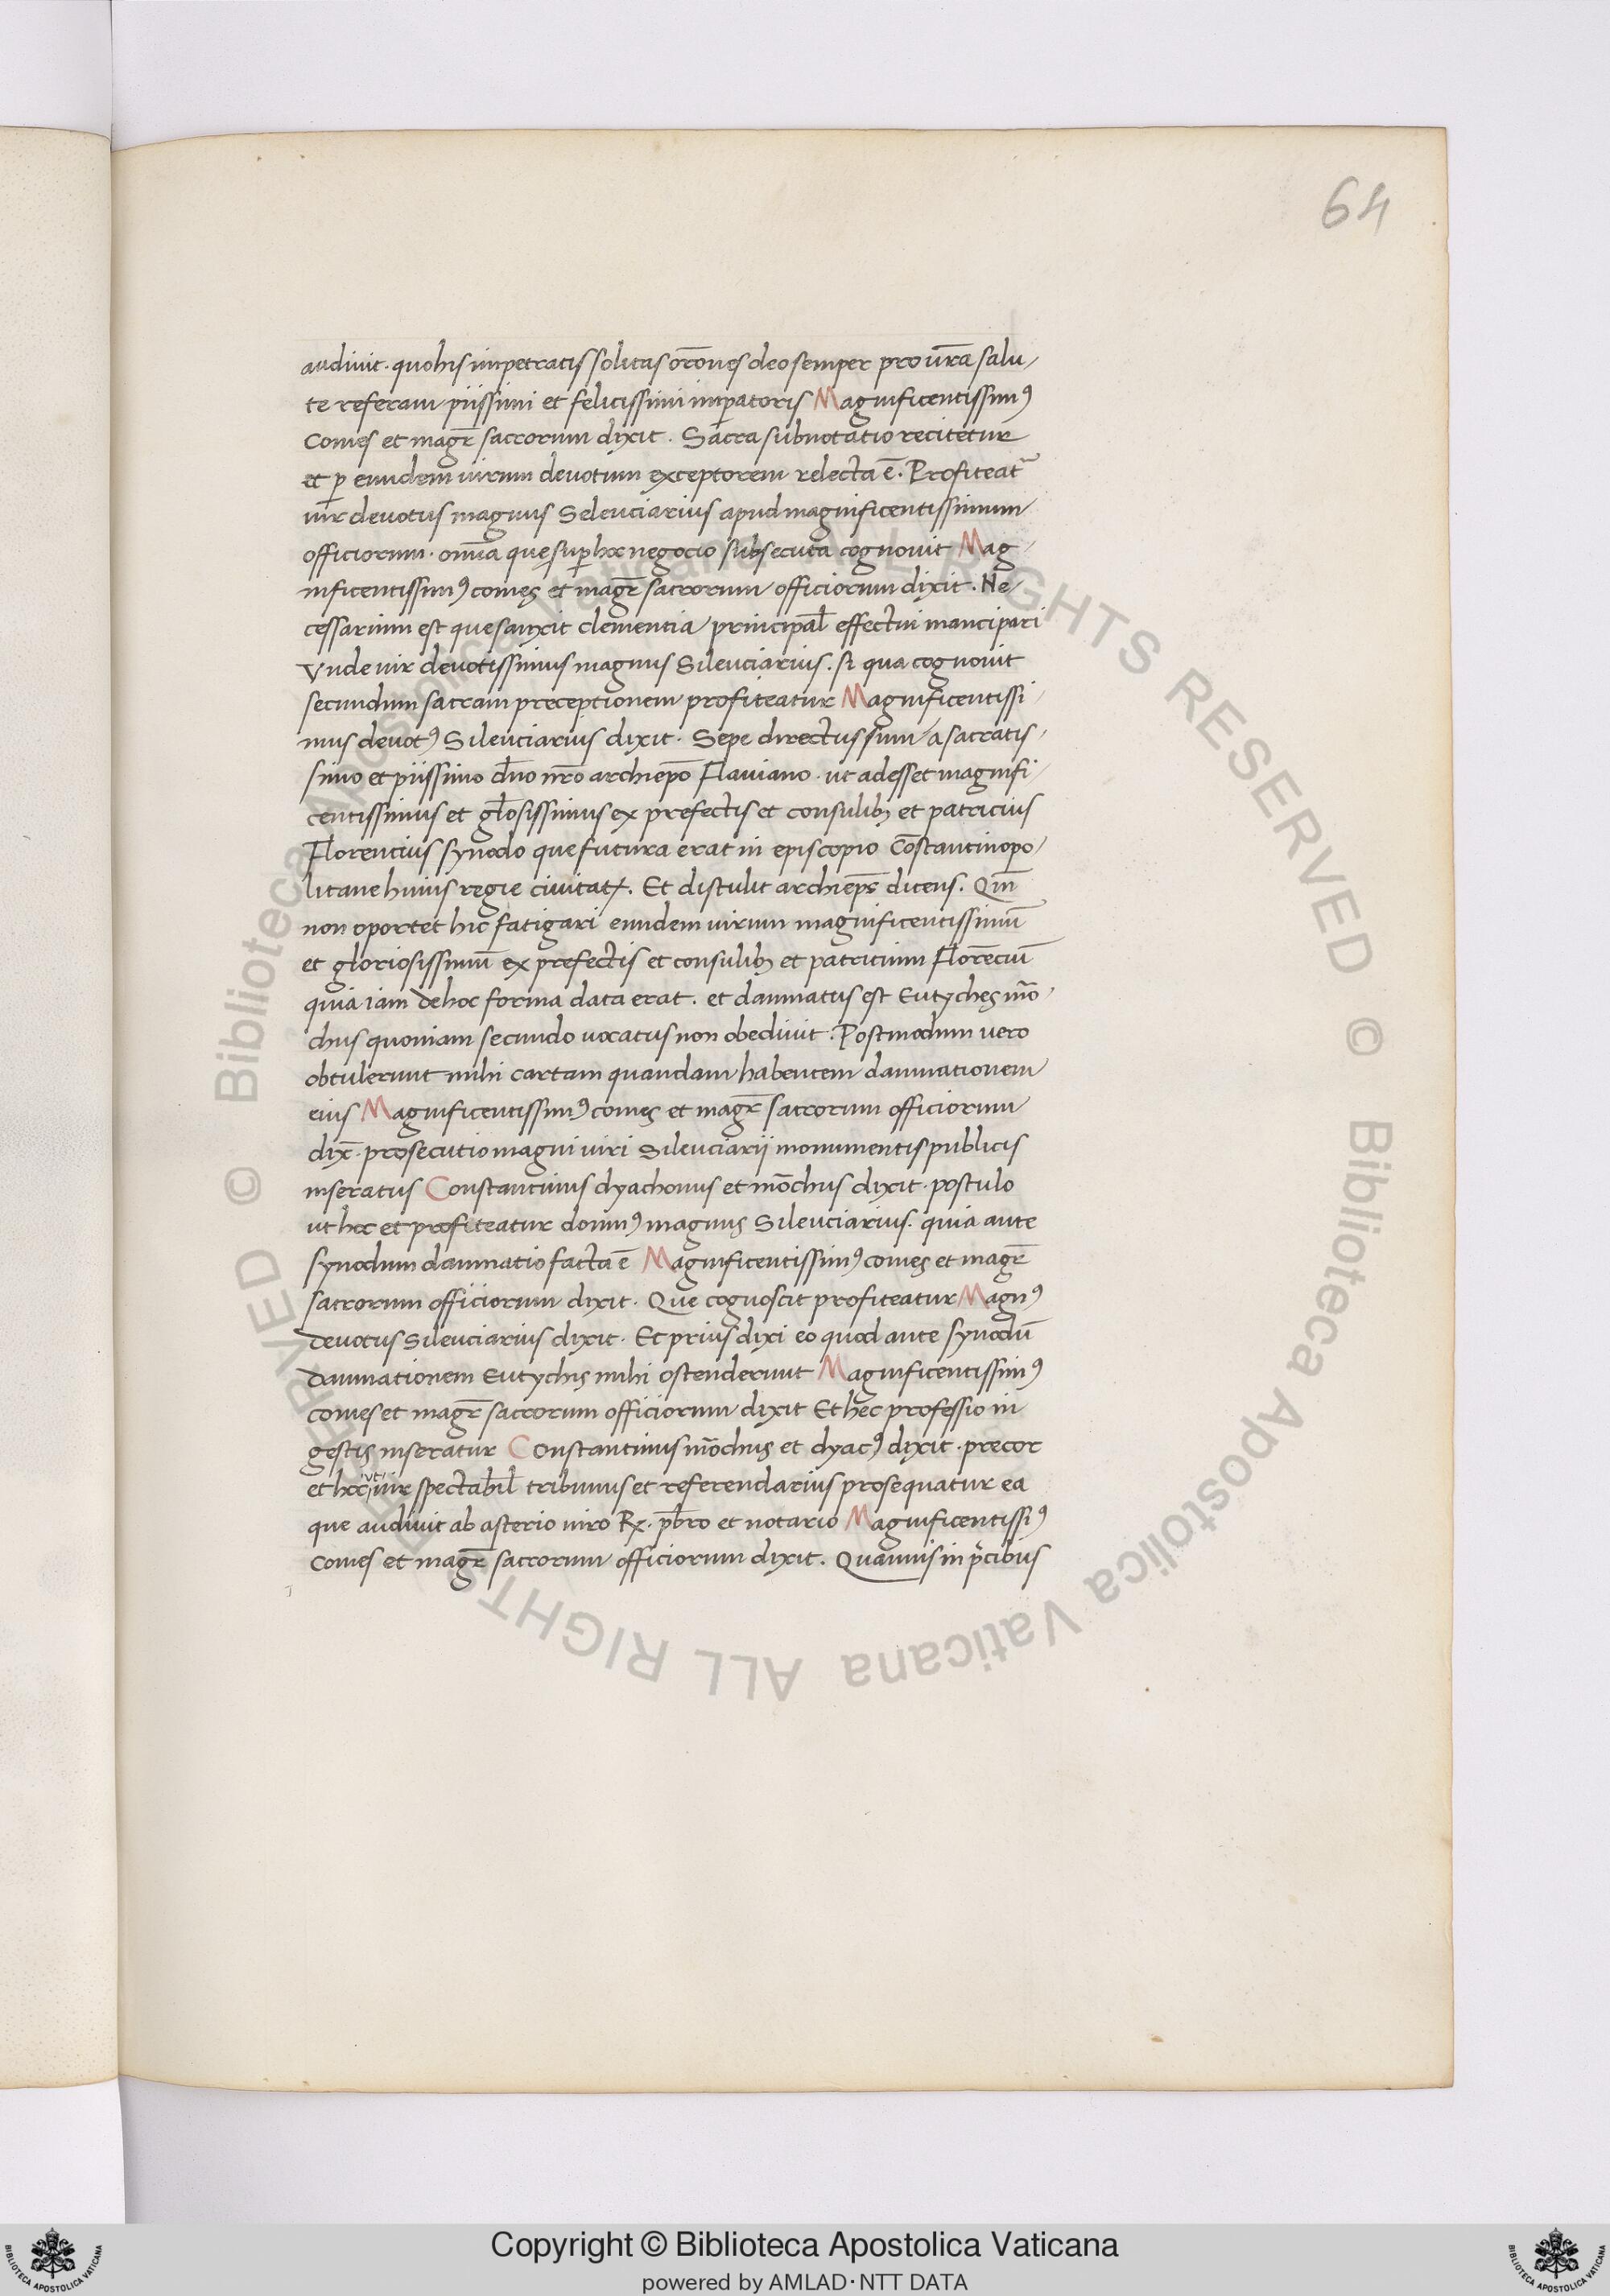 64
audiuit. quo his impetratis solitas orōnes deo semper pro vr̄a salu-
te referam piissimi et felicissimi imꝑatoris Magnificentissimꝰ
Comes et magr̄ sacrorum dixit. Sacra subnotatio recitetur
et ꝑ eundem uirum deuotum exceptorem relecta ē. Profiteat᷑
uir deuotus magnus Seleuciarius apud magnificentissimum
officiorum. omnīa que suꝑ hoc negocio subsecuta cognouit Mag-
nificentissimꝰ comes et magr̄ sacrorum officiorum dixit. Ne-
cessarium est que sanxit clementia principal̄ effectui mancipari
Vnde uir deuotissimus magnus Sileuciarius. si qua cognouit
secundum sacram preceptionem profiteatur Magnificentissi-
mus deuotꝰ Sileuciarius dixit. Sepe directus sum a sacratis-
simo et piissimo dn̄o nr̄o archiep̄o Flauiano. ut adesset magnifi-
centissimus et gl̄osissimus ex prefectis et consulibꝫ et patricius
Florencius synodo que futura erat in episcopio Cōstantinopo-
litane huius regie ciuitatꝭ. Et distulit archiep̄s dicens. Qm̄
non oportet hic fatigari eundem uirum magnificentissimū
et gloriosissimū ex prefectis et consulibꝫ et patricium Florēciū
quia iam de hoc forma data erat. et damnatus est Eutyches mō-
chus quoniam secundo uocatus non obediuit. Postmodum uero
obtulerunt mihi cartam quandam habentem damnationem
eius Magnificentissimꝰ comes et magr̄ sacrorum officiorum
dix̄. prosecutio magni uiri Sileuciarij monumentis publicis
inseratus Constantinus dyachonus et mōchus dixit. postulo
ut hoc et profiteatur domnꝰ magnus Sileuciarius. quia ante
synodum damnatio facta ē Magnificentissimꝰ comes et magr̄
sacrorum officiorum dixit. Que cognoscit profiteatur Magnꝰ
deuotus Sileuciarius dixit. Et prius dixi eo quod ante synodū
damnationem Eutychis mihi ostenderunt Magnificentissimꝰ
comes et magr̄ sacrorum officiorum dixit Et hec professio in
gestis inseratur Constantinus mōchus et dyacꝰ dixit. precor
et hoc ut uir spectabil̄ tribunus et referendarius prosequatur ea
que audiuit ab asterio uiro Rx. pb̄ro et notario Magnificentissiꝰ
Comes et magr̄ sacrorum officiorum dixit. Quamuis in p̄cibus
© Biblioteca Apostolica Vaticana ALL RIGHTS RESERVED © Biblioteca Apostolica Vaticana ALL RIGHTS RESERVED
Copyright © Biblioteca Apostolica Vaticana
powered by AMLAD·NTT DATA
BIBLIOTECA APOSTOLICA VATICANA
BIBLIOTECA APOSTOLICA VATICANA